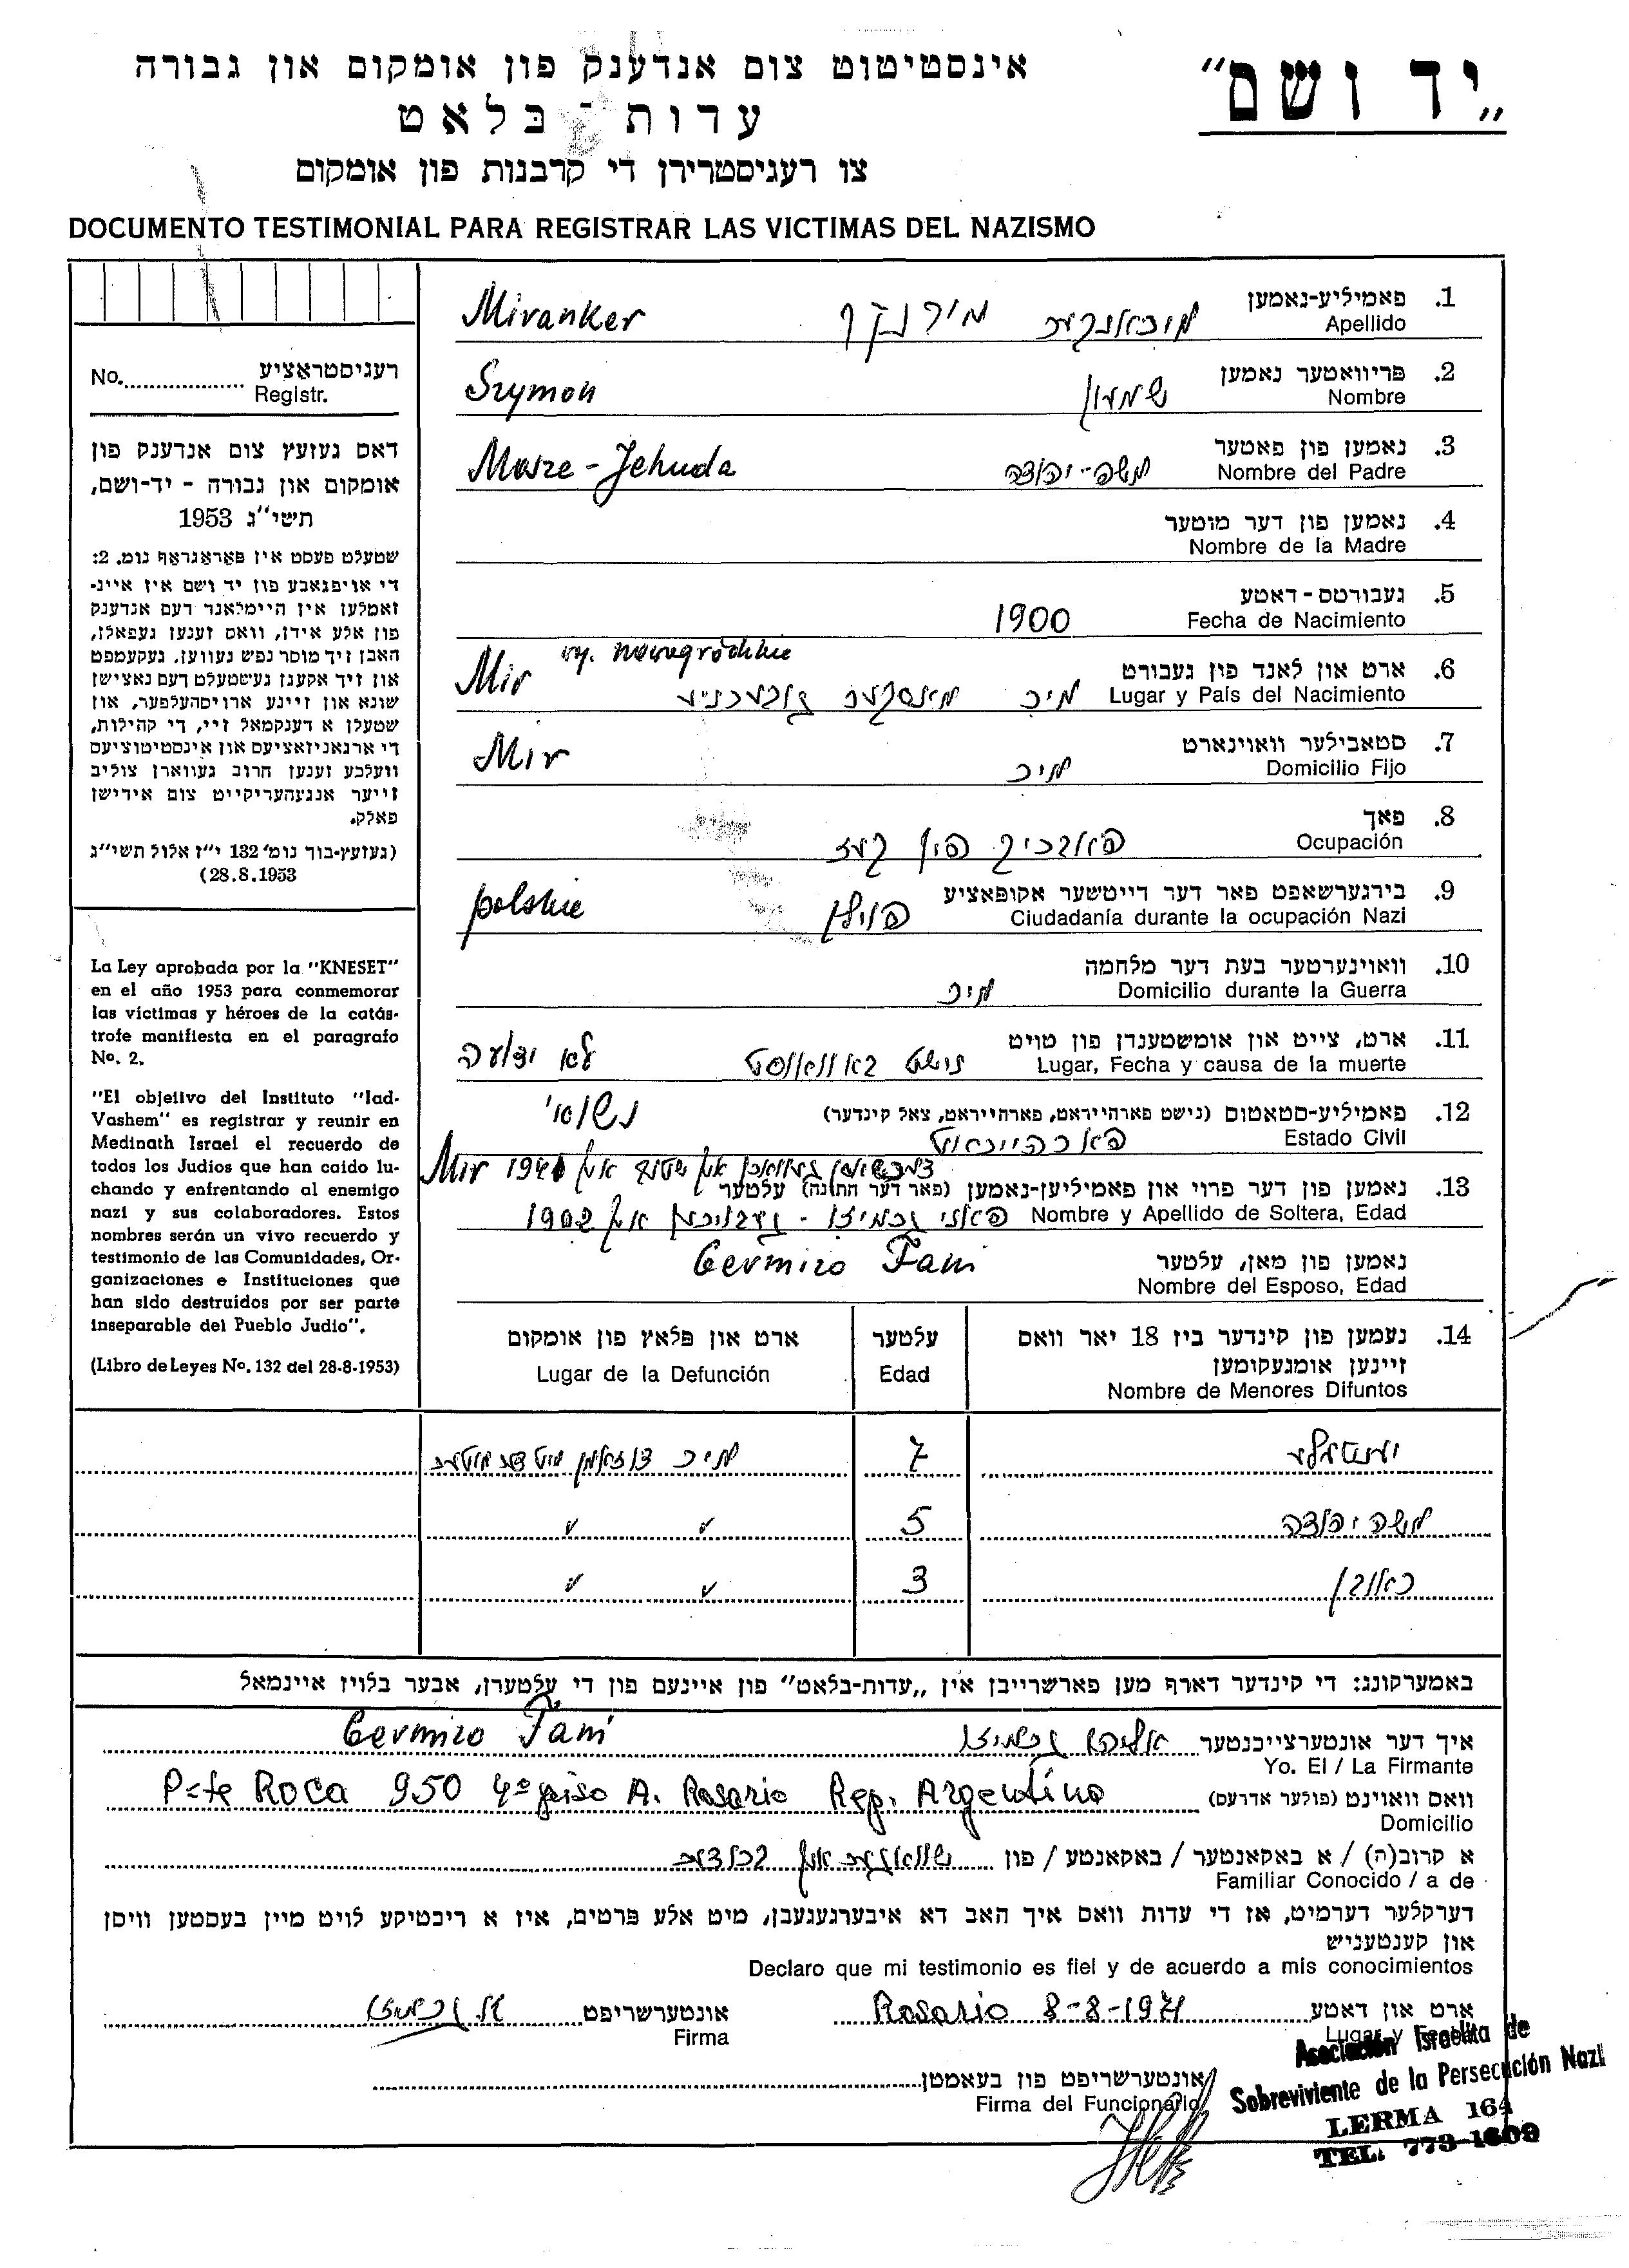 „יד ושם"
אינסטיטוט צום אנדענק פון אומקום און גבורה
עדות-בלאט
צו רעגיסטרירן די קרבנות פון אומקום
DOCUMENTO TESTIMONIAL PARA REGISTRAR LAS VICTIMAS DEL NAZISMO
רעגיסטראציע
No. Registr.
דאס געזעץ צום אנדענק פון
אומקום און גבורה - יד-ושם,
תשי"ג 1953
שטעלט פעסט אין פאראגראף נומ. 2:
די אויפגאבע פון יד ושם איז איינ-
זאמלען אין היימלאנד דעם אנדענק
פון אלע אידן, וואס זענען געפאלן,
האבן זיך מוסר נפש געווען, געקעמפט
און זיך אקעגן געשטעלט דעם נאצישן
שונא און זיינע ארויסהעלפער, און
שטעלן א דענקמאל זיי, די קהילות,
די ארגאניזאציעס און אינסטיטוציעס
וועלכע זענען חרוב געווארן צוליב
זייער אנגעהעריקייט צום אידישן
פאלק.
(געזעץ-בוך נומ' 132 י"ז אלול תשי"ג
(28.8.1953
La Ley aprobada por la "KNESET"
en el año 1953 para conmemorar
las víctimas y héroes de la catás-
trofe manifiesta en el paragrafo
No. 2.
"El objetivo del Instituto "Iad-
Vashem" es registrar y reunir en
Medinath Israel el recuerdo de
todos los Judios que han caido lu-
chando y enfrentando al enemigo
nazi y sus colaboradores. Estos
nombres serán un vivo recuerdo y
testimonio de las Comunidades, Or-
ganizaciones e Instituciones que
han sido destruidos por ser parte
inseparable del Pueblo Judio".
(Libro de Leyes No. 132 del 28-8-1953)
1. פאמיליע-נאמען מיראנקער מירנקר Miranker
Apellido
2. פריוואטער נאמען שמעון Szymon
Nombre
3. נאמען פון פאטער משה-יהודה Mosze-Jehuda
Nombre del Padre
4. נאמען פון דער מוטער
Nombre de la Madre
5. געבורטס-דאטע 1900
Fecha de Nacimiento
wj. nowogródzkie
6. ארט און לאנד פון געבורט Mir
Lugar y País del Nacimiento מיר מינסקער גובערניע
7. סטאבילער וואוינארט Mir
Domicilio Fijo מיר
8. פאך
Ocupación פאבריק פון
9. בירגערשאפט פאר דער דייטשער אקופאציע polskie
Ciudadanía durante la ocupación Nazi פוילן
10. וואוינערטער בעת דער מלחמה
Domicilio durante la Guerra מיר
11. ארט, צייט און אומשטענדן פון טויט
Lugar, Fecha y causa de la muerte נישט באוואוסט לא ידועה
12. פאמיליע-סטאטוס (נישט פארהייראט, פארהייראט, צאל קינדער) נשוי
Estado Civil פארהייראט
דערשאסן געווארן אין שטוב אין 1941 Mir
13. נאמען פון דער פרוי און פאמיליען-נאמען (פאר דער חתונה) עלטער
Nombre y Apellido de Soltera, Edad פאני גערמיזא - געבוירן אין 1902
נאמען פון מאן, עלטער Germizo Fani
Nombre del Esposo, Edad
14. נעמען פון קינדער ביז 18 יאר וואס עלטער ארט און פלאץ פון אומקום
זיינען אומגעקומען
Nombre de Menores Difuntos Edad Lugar de la Defunción
7 מיר צוזאמען מיט דער מוטער
משה יהודה 5 ✓ ✓
ראובן 3 ✓ ✓
באמערקונג: די קינדער דארף מען פארשרייבן אין „עדות-בלאט" פון איינעם פון די עלטערן, אבער בלויז איינמאל
איך דער אונטערצייכנטער גערמיזא Germizo Fani
Yo. El / La Firmante
וואס וואוינט (פולער אדרעס) Pte Roca 950 4º piso A. Rosario Rep. Argentina
Domicilio
א קרוב(ה) / א באקאנטער / באקאנטע / פון שוואגער און ברודער
Familiar Conocido / a de
דערקלער דערמיט, אז די עדות וואס איך האב דא איבערגעגעבן, מיט אלע פרטים, איז א ריכטיקע לויט מיין בעסטען וויסן
און קענטעניש
Declaro que mi testimonio es fiel y de acuerdo a mis conocimientos
ארט און דאטע Rosario 8-8-1971 אונטערשריפט
Lugar y Firma
אונטערשריפט פון בעאמטן
Firma del Funcionario
Asociación Israelita de
Sobreviviente de la Persecución Nazi
LERMA 164
TEL. 773-1609